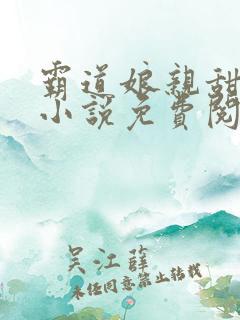 霸道娘親甜
小説免費閱
吳江薛
未經同意禁止轉載